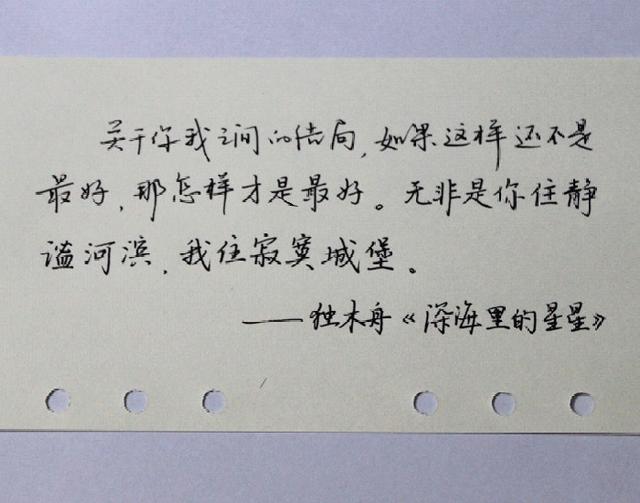 关于你我之间的结局,如果这样还不是
最好,那怎样才是最好。无非是你住静
谧河滨,我住寂寞城堡。
——独木舟《深海里的星星》